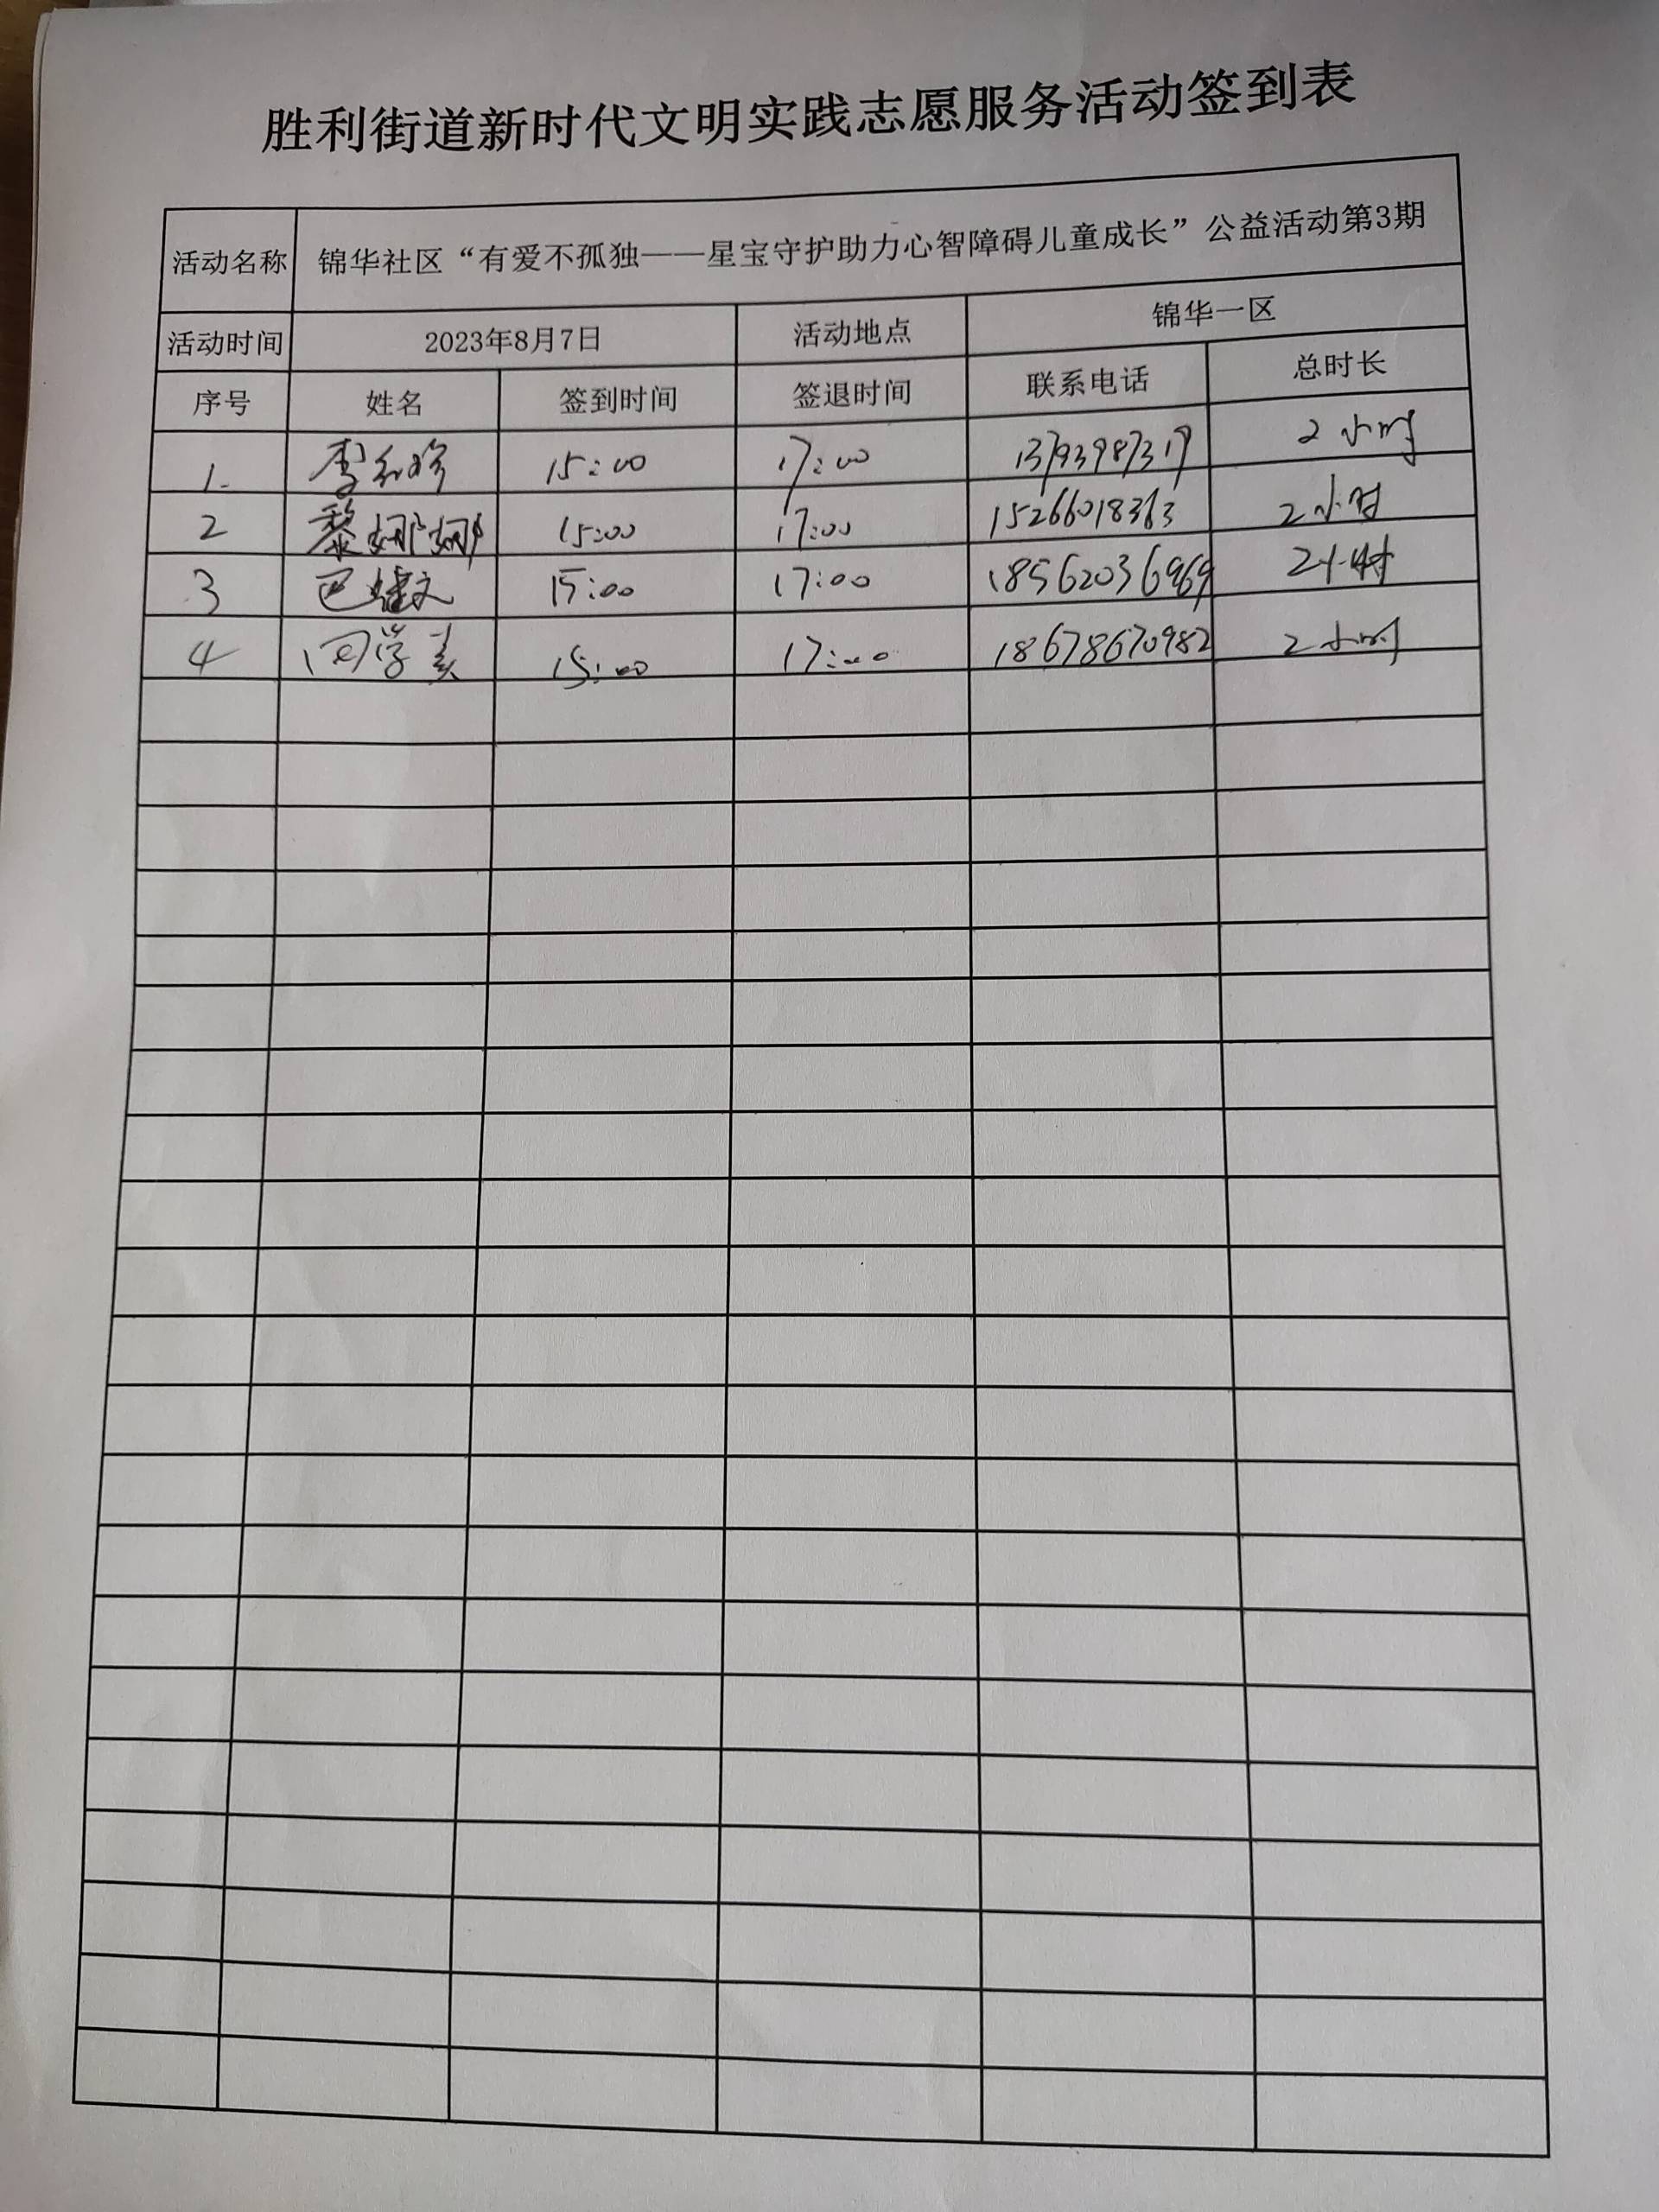 胜利街道新时代文明实践志愿服务活动签到表
活动名称 锦华社区“有爱不孤独——星宝守护助力心智障碍儿童成长”公益活动第3期
活动时间 2023年8月7日 活动地点 锦华一区
序号 姓名 签到时间 签退时间 联系电话 总时长
1. 15:00 17:00 13793987317 2小时
2 黎娜娜 15:00 17:00 15266018363 2小时
3 15:00 17:00 18562036969 2小时
4 15:00 17:00 18678670982 2小时